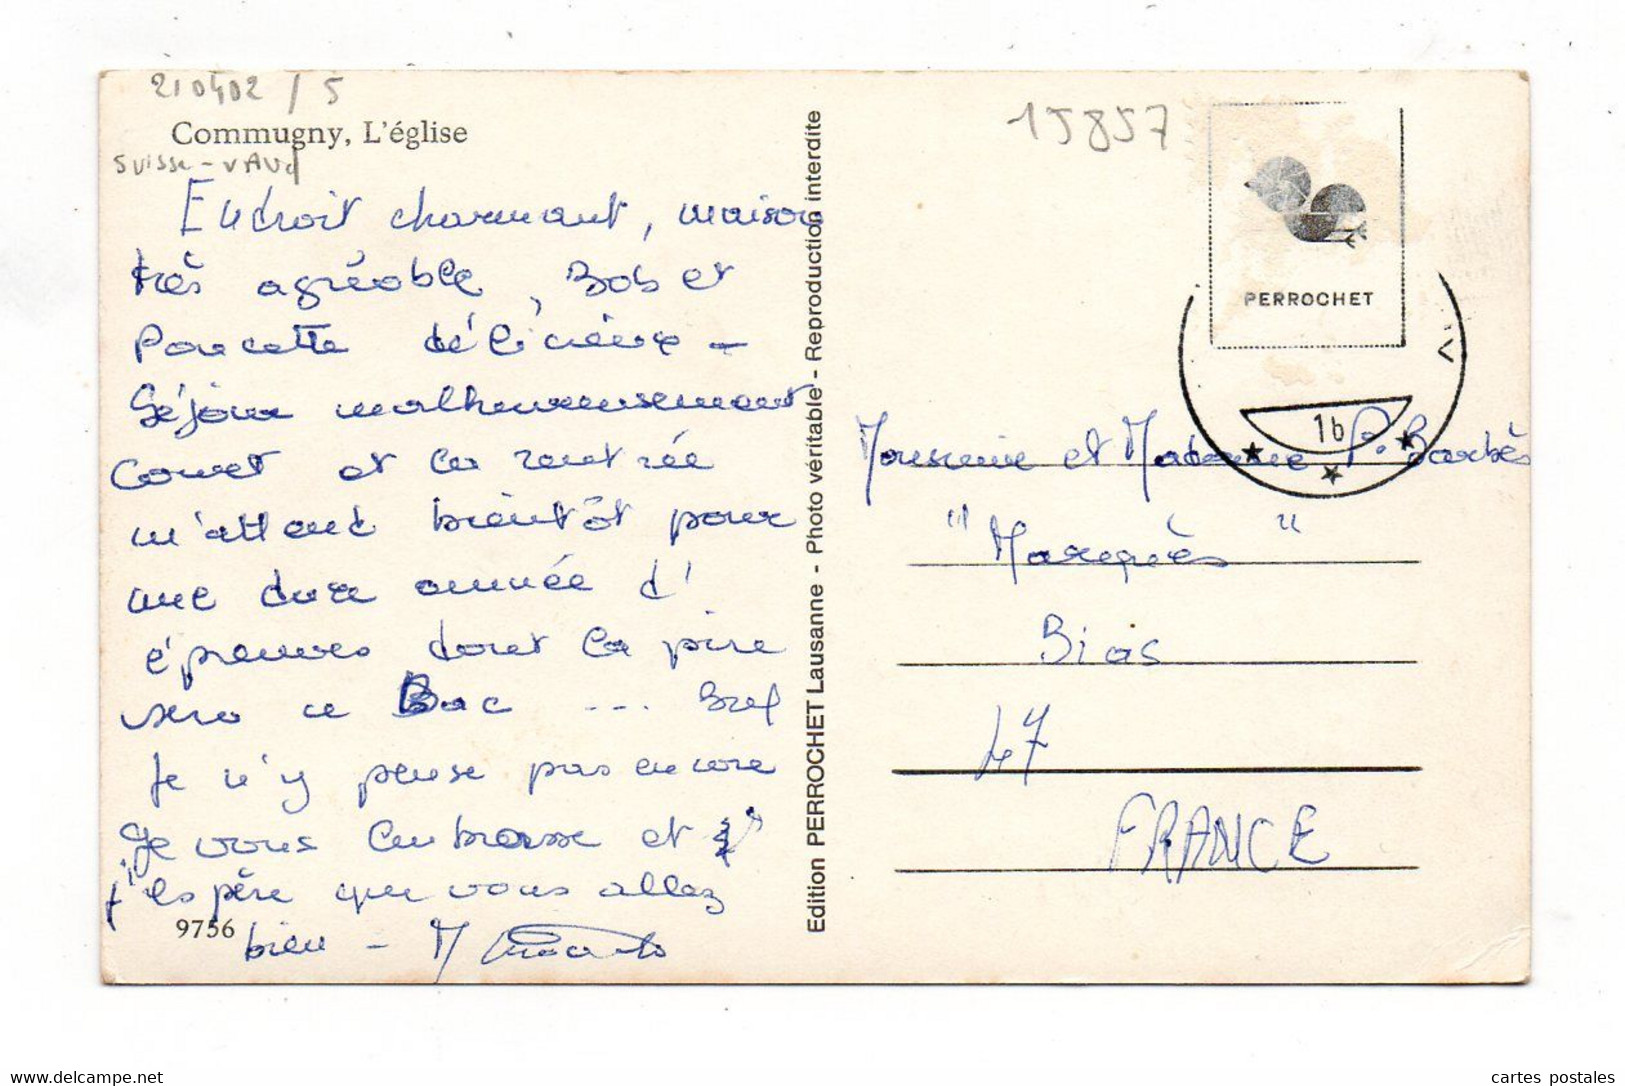 210402 / 5
Commugny, L'église
SUISSE - VAUD
Endroit charmant, maison
très agréable, Bob et
Poucette délicieux -
Séjour malheureusement
court et la rentrée
m'attend bientôt pour
une dure année d'
épreuves dont la pire
sera ce Bac ... Bref
Je n'y pense pas encore
Je vous embrasse et
j'espère que vous allez
bien - M
9756
Edition PERROCHET Lausanne - Photo véritable - Reproduction interdite
15857
PERROCHET
1b
Monsieur et Madame P. Barbès
"Marquès"
Bias
47
FRANCE
www.delcampe.net
cartes postales